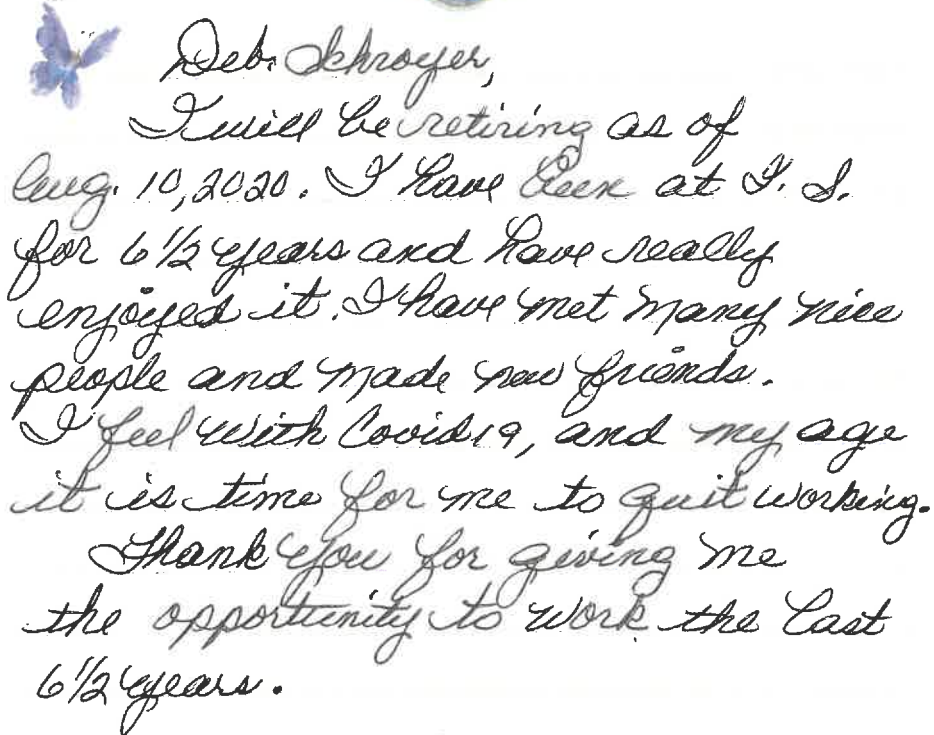 Deb. Schroyer,
I will be retiring as of
Aug. 10, 2020. I have been at I. S.
for 6 1/2 years and have really
enjoyed it. I have met many nice
people and made new friends.
I feel with Covid 19, and my age
it is time for me to quit working.
Thank you for giving me
the opportunity to work the last
6 1/2 years.